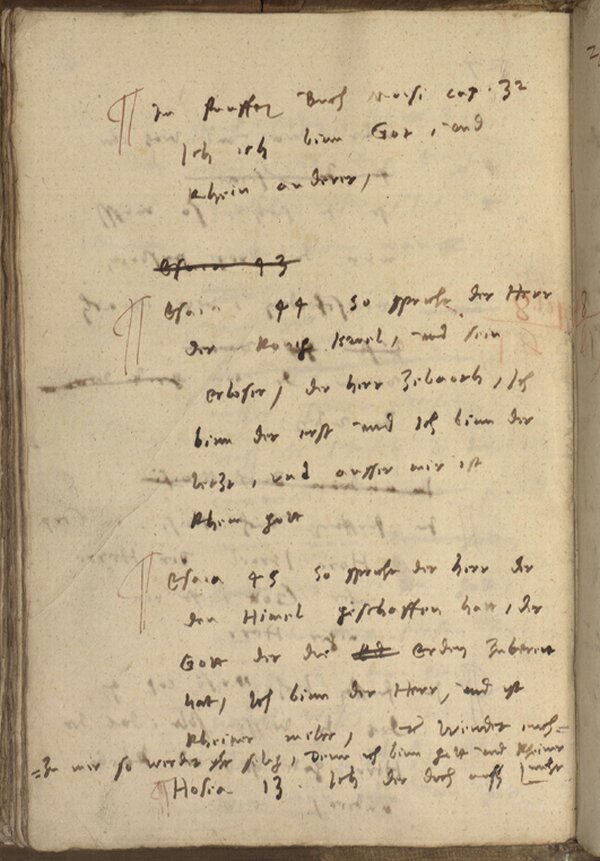 ¶ Im funfften Buch Mosi cap. 32
Ich ich binn Gott, und
khein anderer,
Esaia 43
¶ Esaia 44 So spricht der Herr
der König Israel, und sein
erloser, der herr Zebaoth, Ich
binn der erst und Ich binn der
letzt, und ausser mir ist
khein gott
¶ Esaia 45 So spricht der herr der
den Himel geschaffen hatt, der
Gott der die erden Zubereit
hat, Ich binn der Herr, und ist
kheiner meher, wendet euch
Zu mir so werdet yhr selig, Denn ich binn gott und kheiner
mehr
¶ Hosia 13. Ich der doch auss